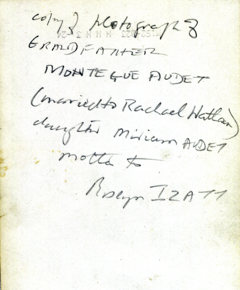 copy of photograph of
GRANDFATHER
MONTEGUE AUDET
(married to Rachael Nathan)
daughter Miriam AUDET
mother to
Roslyn IZATT